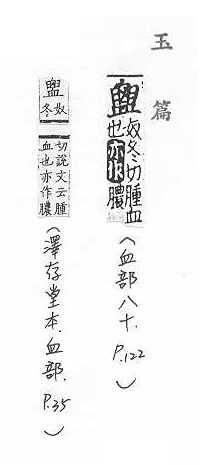 玉篇
𧗕奴冬切腫血也亦作膿(血部八十. P.122)
𧗕奴冬切說文云腫血也亦作膿(澤存堂本.血部. P.35)